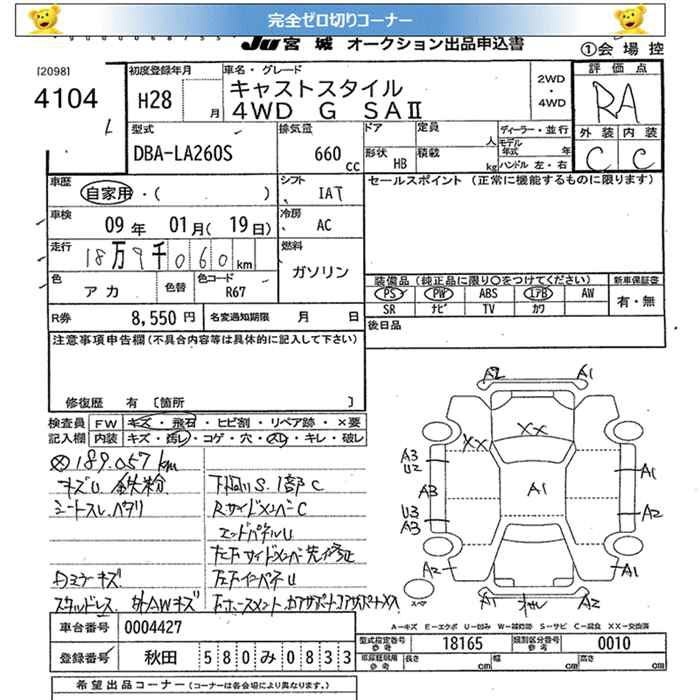 完全ゼロ切りコーナー
JU 宮城 オークション出品申込書
①会場控
[2098]
4104
初度登録年月 H28 月
車名・グレード
キャストスタイル
4WD G SAⅡ
2WD・4WD
評価点
RA
外装 内装
C C
型式
DBA-LA260S
排気量
660 cc
ドア
形状 HB
定員 人
積載 kg
ディーラー・並行
モデル年式 年
ハンドル 左・右
車歴 自家用・( )
シフト IAT
セールスポイント (正常に機能するものに限ります)
車検 09年 01月(19日)
冷房 AC
走行 18万9千060km
燃料 ガソリン
色 アカ 色替 色コード R67
装備品 (純正品に限り○をつけてください) 新車保証書
PS PW ABS エアB AW 有・無
SR ナビ TV カワ
R券 8,550円 名変通知期限 月 日
後日品
注意事項申告欄(不具合内容等は具体的に記入して下さい)
修復歴 有 [箇所 ]
検査員 FW キズ・飛石・ヒビ割・リペア跡・×要
記入欄 内装 キズ・汚レ・コゲ・穴・スレ・キレ・破レ
189.057km
キズU 鉄粉
シートスレ.ヘタリ
下回りS.1部C
RサイドメンバーC
エンドパネルU
キズ
スタッドレス.
A2 A1
XX XX
A3
U2
A3
U3
A3
A1
A1
A2
A2 A1
A1 A2
スペア
A-キズ E-エクボ U-凹み W-補修跡 S-サビ C-腐食 XX-交換済
車台番号 0004427
型式指定番号 参考 18165 類別区分番号 参考 0010
登録番号 秋田 580み0833
車庫証明用 参考 長さ cm 幅 cm 高さ cm
希望出品コーナー (コーナーは各会場により異なります)